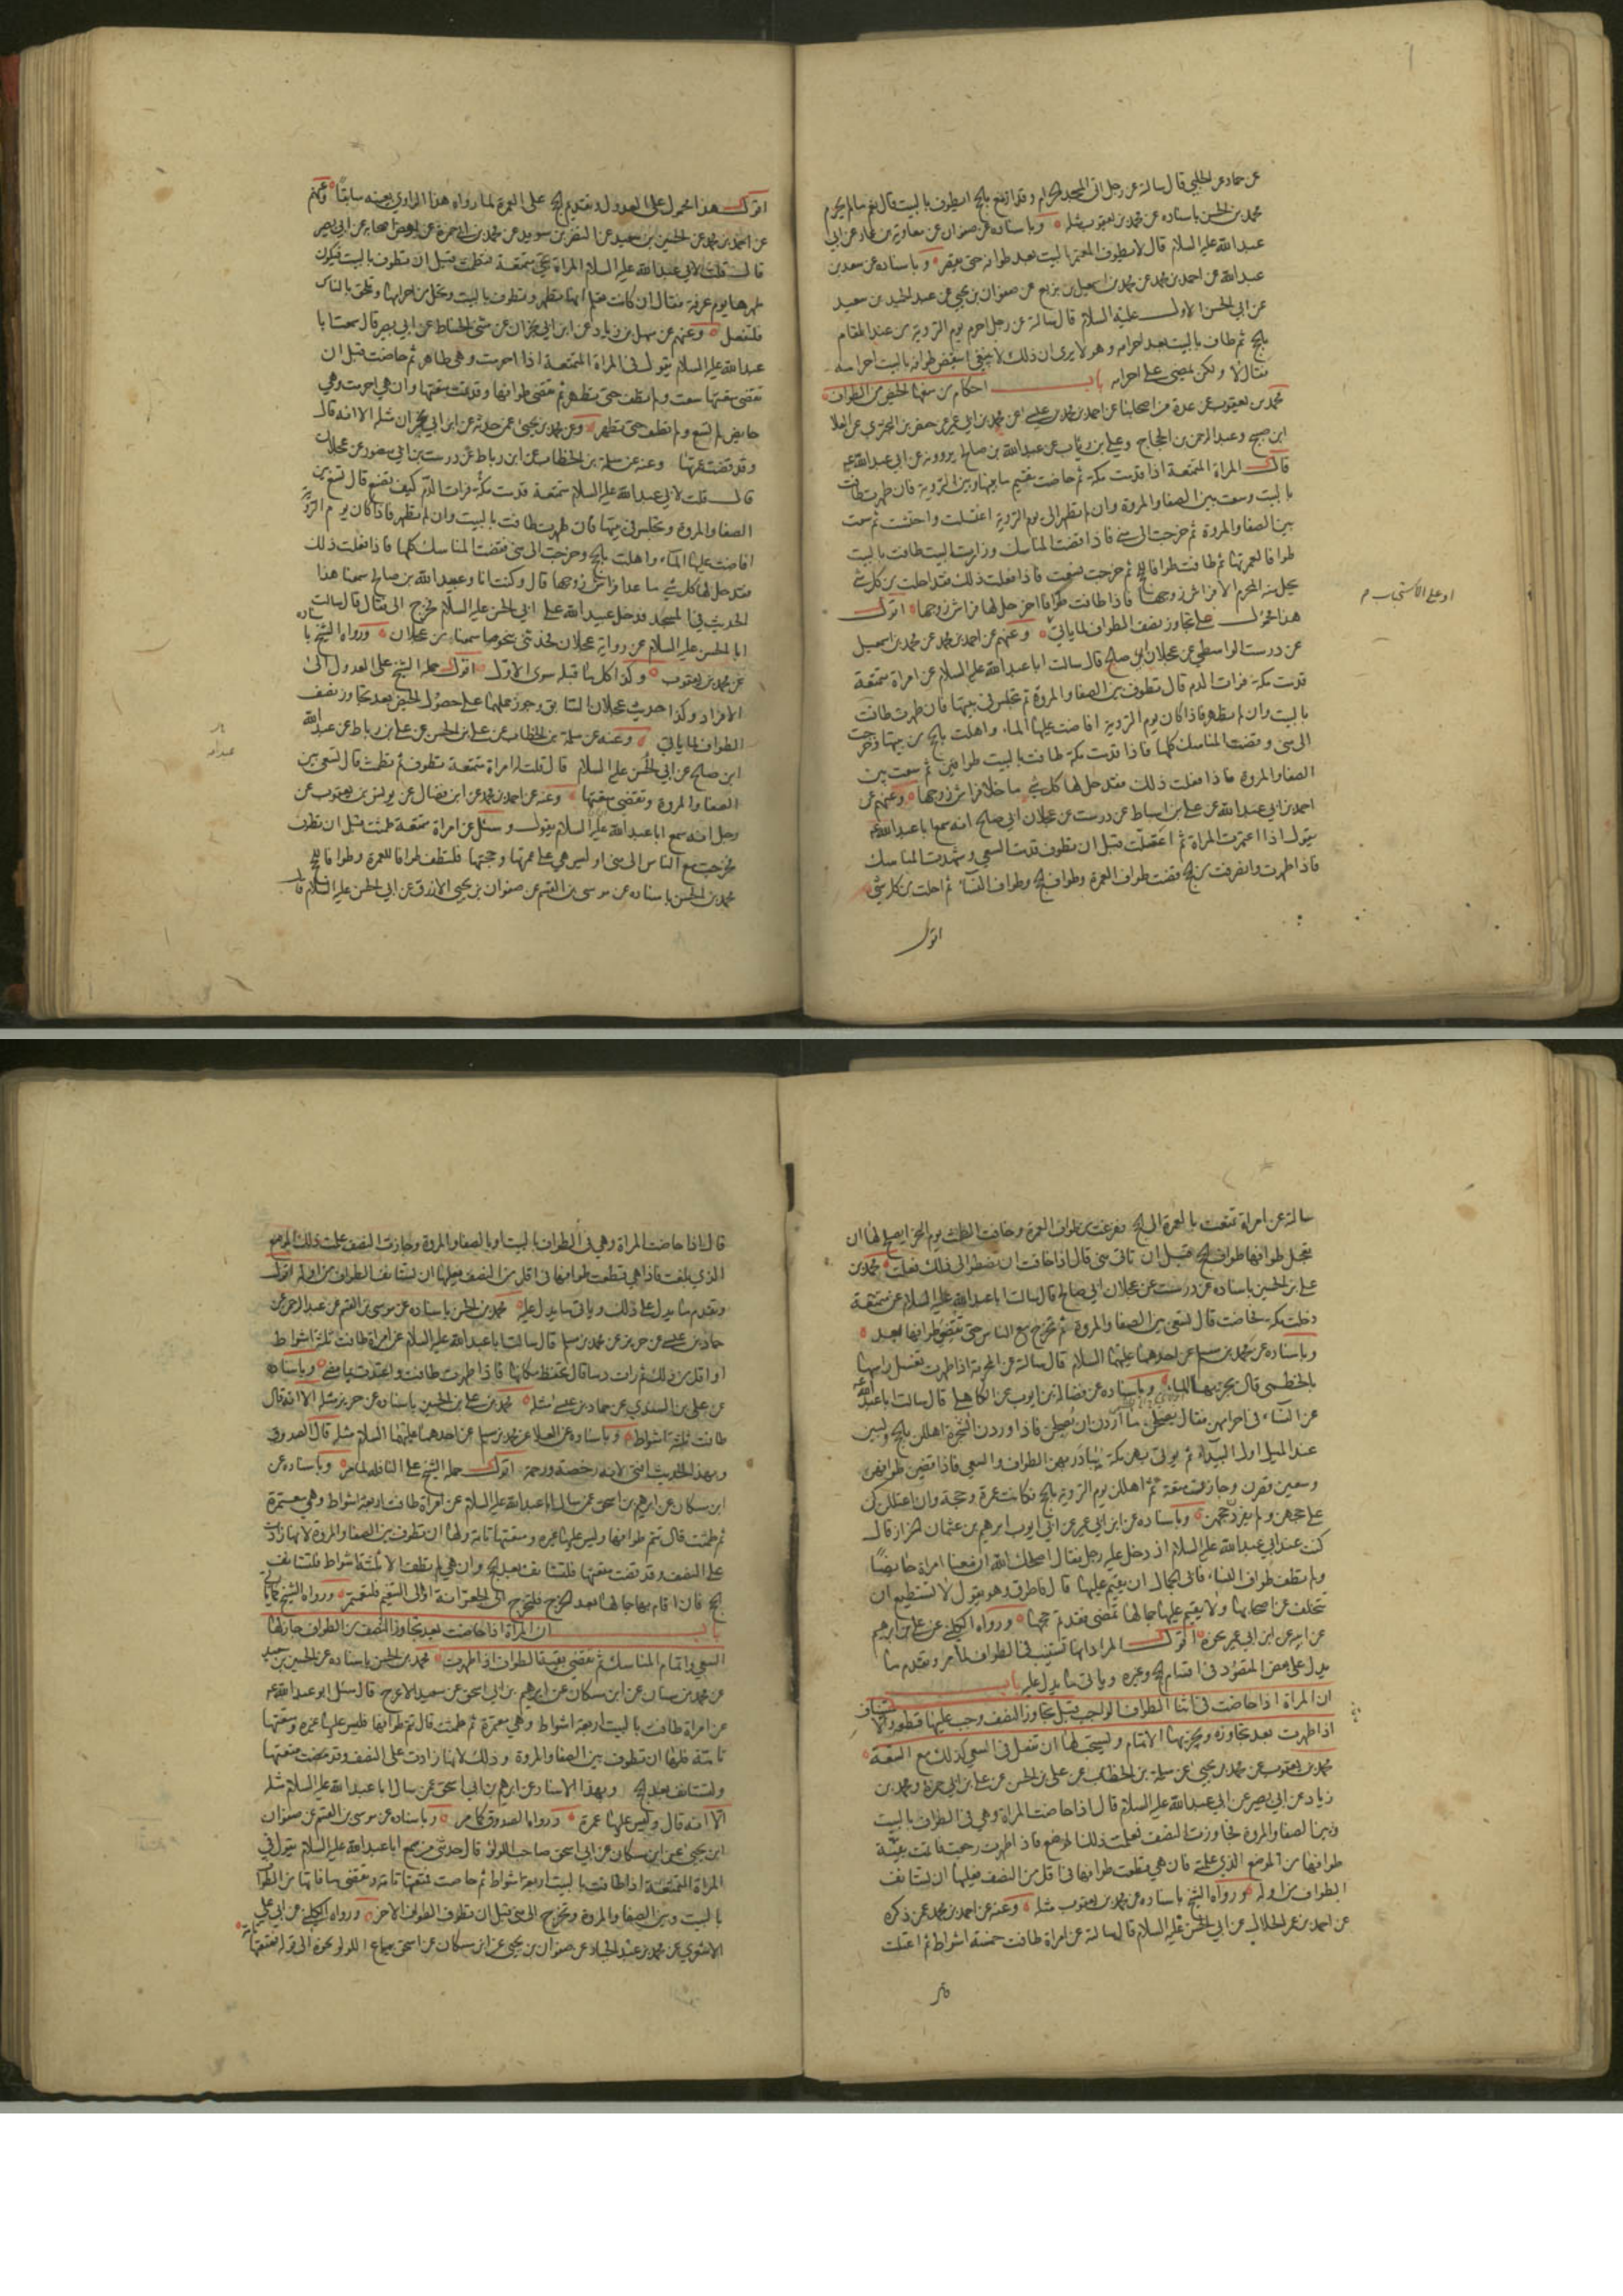 عن حماد عن الحلبي قال سالته عن رجل اتى المسجد الحرام وقد ازمع بالحج ايطوف بالبيت قال نعم ما لم يحرم
محمد بن الحسن باسناده عن محمد بن يعقوب مثله وباسناده عن صفوان عن معاوية بن عمار عن ابي
عبد الله عليه السلام قال لا يطوف المعتمر بالبيت بعد طوافه حتى يقصر وباسناده عن سعد بن
عبد الله عن احمد بن محمد عن محمد بن اسمعيل بن بزيع عن صفوان بن يحيى عن عبد الحميد بن سعيد
عن ابي الحسن الاول عليه السلام قال سالته عن رجل احرم يوم التروية من عند المقام
بالحج ثم طاف بالبيت بعد احرامه وهو لا يرى ان ذلك لا ينبغي اينقض طوافه بالبيت احرامه
فقال لا ولكن يمضي على احرامه باب احكام من منعها الحيض من الطواف
محمد بن يعقوب عن عدة من اصحابنا عن احمد بن محمد بن عيسى عن محمد بن ابي عمير عن حفص بن البختري عن العلا
ابن صبيح وعبد الرحمن بن الحجاج وعلي بن رئاب عن عبد الله بن صالح يروونه عن ابي عبد الله ع
قال المراة المتمتعة اذا قدمت مكة ثم حاضت تقيم ما بينها وبين التروية فان طهرت طافت
بالبيت وسعت بين الصفا والمروة وان لم تطهر الى يوم التروية اغتسلت واحتشت ثم سعت
بين الصفا والمروة ثم خرجت الى منى فاذا قضت المناسك وزارت البيت طافت بالبيت
طوافا لعمرتها ثم طافت طوافا للحج ثم خرجت فسعت فاذا فعلت ذلك فقد احلت من كل شي
يحل منه المحرم الا فراش زوجها فاذا طافت طوافا اخر حل لها فراش زوجها اقول
هذا محمول على تجاوز نصف الطواف لما ياتي وعنهم عن احمد بن محمد عن محمد بن اسمعيل
او على الاستحباب م
عن درست الواسطي عن عجلان ابي صالح قال سالت ابا عبد الله عليه السلام عن امراة متمتعة
قدمت مكة فرات الدم قال تطوف بين الصفا والمروة ثم تجلس في بيتها فان طهرت طافت
بالبيت وان لم تطهر فاذا كان يوم التروية افاضت عليها الماء واهلت بالحج من بيتها وخرجت
الى منى وقضت المناسك كلها فاذا قدمت مكة طافت بالبيت طوافين ثم سعت بين
الصفا والمروة فاذا فعلت ذلك فقد حل لها كل شي ما خلا فراش زوجها وعنهم عن
احمد بن ابي عبد الله عن علي بن اسباط عن درست عن عجلان ابي صالح انه سمع ابا عبد الله ع
يقول اذا اعتمرت المراة ثم اعتلت قبل ان تطوف قدمت السعي وشهدت المناسك
فاذا طهرت وانصرفت من الحج قضت طواف العمرة وطواف الحج وطواف النساء ثم احلت من كل شي
اقول
اقول هذا محمول على العدول وتقديم الحج على العمرة لما رواه هذا الراوي بعينه سابقا وعنهم
عن احمد بن محمد عن الحسين بن سعيد عن النضر بن سويد عن محمد بن ابي حمزة عن بعض اصحابه عن ابي بصير
قال قلت لابي عبد الله عليه السلام المراة تجي متمتعة فتطمث قبل ان تطوف بالبيت فيكون
طهرها يوم عرفة فقال ان كانت تعلم انها تطهر وتطوف بالبيت وتحل من احرامها وتلحق بالناس
فلتفعل وعنهم عن سهل بن زياد عن ابن ابي نجران عن مثنى الحناط عن ابي بصير قال سمعت ابا
عبد الله عليه السلام يقول في المراة المتمتعة اذا احرمت وهي طاهر ثم حاضت قبل ان
تقضي متعتها سعت ولم تطف حتى تطهر ثم تقضي طوافها وقد تمت متعتها وان هي احرمت وهي
حائض لم تسع ولم تطف حتى تطهر وعن محمد بن يحيى عمن حدثه عن ابن ابي نجران مثله الا انه قال
وقد قضت عمرتها وعنه عن سلمة بن الخطاب عن ابن رباط عن درست بن ابي منصور عن عجلان
قال قلت لابي عبد الله عليه السلام متمتعة قدمت مكة فرات الدم كيف تصنع قال تسعى بين
الصفا والمروة وتجلس في بيتها فان طهرت طافت بالبيت وان لم تطهر فاذا كان يوم التروية
افاضت عليها الماء واهلت بالحج وخرجت الى منى فقضت المناسك كلها فاذا فعلت ذلك
فقد حل لها كل شي ما عدا فراش زوجها قال وكنت انا وعبيد الله بن صالح سمعنا هذا
الحديث في المسجد فدخل عبيد الله على ابي الحسن عليه السلام فخرج الي فقال قال سالت
ابا الحسن عليه السلام عن رواية عجلان فحدثني بنحو ما سمعنا من عجلان ورواه الشيخ باسناده
عن محمد بن يعقوب وكذا كل ما قبله سوى الاول اقول حمله الشيخ على العدول الى
الافراد وكذا حديث عجلان السابق وجوز حملهما على حصول الحيض بعد تجاوز نصف
الطواف لما ياتي وعنه عن سلمة بن الخطاب عن علي بن الحسن عن علي بن رباط عن عبد الله
ابن صالح عن ابي الحسن عليه السلام قال قلت له امراة متمتعة تطوف ثم تطمث قال تسعى بين
الصفا والمروة وتقضي متعتها وعنه عن احمد بن محمد عن ابن فضال عن يونس بن يعقوب عن
رجل انه سمع ابا عبد الله عليه السلام يقول وسئل عن امراة متمتعة طمثت قبل ان تطوف
فخرجت مع الناس الى منى اوليس هي على عمرتها وحجتها فلتطف طوافا للعمرة وطوافا للحج
محمد بن الحسن باسناده عن موسى بن القسم عن صفوان بن يحيى الازرق عن ابي الحسن عليه السلام قال
سالته عن امراة تمتعت بالعمرة الى الحج ففرغت من طواف العمرة وخافت الطمث يوم النحر ايصلح لها ان
تعجل طوافها طواف الحج قبل ان تاتي منى قال اذا خافت ان تضطر الى ذلك فعلت محمد بن
علي بن الحسين باسناده عن درست عن عجلان ابي صالح قال سالت ابا عبد الله عليه السلام عن متمتعة
دخلت مكة فحاضت قال تسعى بين الصفا والمروة ثم تخرج مع الناس حتى تقضي طوافها بعد
وباسناده عن محمد بن مسلم عن احدهما عليهما السلام قال سالته عن المحرمة اذا طهرت تغسل راسها
بالخطمي قال يجزيها الماء وباسناده عن فضالة بن ايوب عن الكاهلي قال سالت ابا عبد الله ع
عن النساء في احرامهن فقال يصلحن ما اردن ان يصلحن فاذا وردن الشجرة اهللن بالحج ولبين
عند الميل اول البيداء ثم يؤتى بهن مكة يبادر بهن الطواف والسعي فاذا قضين طوافهن
وسعين قصرن وجازت متعة ثم اهللن يوم التروية بالحج فكانت عمرة وحجة وان اعتللن كن
على حجهن ولم يفردن حجهن وباسناده عن ابن ابي عمير عن ابي ايوب ابراهيم بن عثمان الخزاز قال
كنت عند ابي عبد الله عليه السلام اذ دخل عليه رجل فقال اصلحك الله ان معنا امراة حائضا
ولم تطف طواف النساء فابى الجمال ان يقيم عليها قال فاطرق وهو يقول لا تستطيع ان
تتخلف عن اصحابها ولا يقيم عليها جمالها تمضي فقد تم حجها ورواه الكليني عن علي بن ابراهيم
عن ابيه عن ابن ابي عمير نحوه اقول المراد انها تستنيب في الطواف لما مر وتقدم ما
يدل على بعض المقصود في اقسام الحج وغيره وياتي ما يدل عليه باب
ان المراة اذا حاضت في اثنا الطواف الواجب قبل تجاوز النصف وجب عليها
اذا طهرت بعد تجاوزه ويجزيها الاتمام ويستحب لها ان تفعل في السعي كذلك مع السعة
محمد بن يعقوب عن محمد بن يحيى عن سلمة بن الخطاب عن علي بن الحسن عن علي بن ابي حمزة ومحمد بن
زياد عن ابي بصير عن ابي عبد الله عليه السلام قال اذا حاضت المراة وهي في الطواف بالبيت
وبين الصفا والمروة فجاوزت النصف فعلمت ذلك الموضع فاذا طهرت رجعت فاتمت بقية
طوافها من الموضع الذي علمته فان هي قطعت طوافها في اقل من النصف فعليها ان تستانف
الطواف من اوله ورواه الشيخ باسناده عن محمد بن يعقوب مثله وعنه عن احمد بن محمد عمن ذكره
عن احمد بن عمر الحلال عن ابي الحسن عليه السلام قال سالته عن امراة طافت خمسة اشواط ثم اعتلت
قال اذا حاضت المراة وهي في الطواف بالبيت او بالصفا والمروة وجازت النصف علمت ذلك الموضع
الذي بلغت فاذا هي قطعت طوافها في اقل من النصف فعليها ان تستانف الطواف من اوله اقول
وتقدم ما يدل على ذلك وياتي ما يدل عليه محمد بن الحسن باسناده عن موسى بن القسم عن عبد الرحمن عن
حماد بن عيسى عن حريز عن محمد بن مسلم قال سالت ابا عبد الله عليه السلام عن امراة طافت ثلثة اشواط
او اقل من ذلك ثم رات دما قال تحفظ مكانها فاذا طهرت طافت واعتدت بما مضى وباسناده
عن علي بن السندي عن حماد بن عيسى مثله محمد بن علي بن الحسين باسناده عن حريز مثله الا انه قال
طافت ثلثة اشواط وباسناده عن العلا عن محمد بن مسلم عن احدهما عليهما السلام مثله قال الصدوق
وبهذا الحديث افتي لانه رخصة ورحمة اقول حمله الشيخ على النافلة لما مر وباسناده عن
ابن مسكان عن ابراهيم بن اسحق عمن سال ابا عبد الله عليه السلام عن امراة طافت اربعة اشواط وهي معتمرة
ثم طمثت قال تتم طوافها وليس عليها غيره ومتعتها تامة ولها ان تطوف بين الصفا والمروة لانها زادت
على النصف وقد قضت متعتها فلتستانف بعد الحج وان هي لم تطف الا ثلثة اشواط فلتستانف
الحج فان اقام بها جمالها بعد الحج فلتخرج الى الجعرانة او الى التنعيم فلتعتمر ورواه الشيخ كما ياتي
باب ان المراة اذا حاضت بعد تجاوز النصف من الطواف جاز لها
السعي واتمام المناسك ثم تقضي بقية الطواف اذا طهرت محمد بن الحسن باسناده عن الحسين بن سعيد
عن محمد بن سنان عن ابن مسكان عن ابراهيم بن ابي اسحق عن سعيد الاعرج قال سئل ابو عبد الله ع
عن امراة طافت بالبيت اربعة اشواط وهي معتمرة ثم طمثت قال تتم طوافها فليس عليها غيره ومتعتها
تامة فلها ان تطوف بين الصفا والمروة وذلك لانها زادت على النصف وقد مضت متعتها
ولتستانف بعد الحج وبهذا الاسناد عن ابراهيم بن ابي اسحق عمن سال ابا عبد الله عليه السلام مثله
الا انه قال وليس عليها عمرة ورواه الصدوق كما مر وباسناده عن موسى بن القسم عن صفوان
ابن يحيى عن ابن مسكان عن ابي اسحق صاحب اللؤلؤ قال حدثني من سمع ابا عبد الله عليه السلام يقول في
المراة المتمتعة اذا طافت بالبيت اربعة اشواط ثم حاضت فمتعتها تامة وتقضي ما فاتها من الطواف
بالبيت وبين الصفا والمروة وتخرج الى منى قبل ان تطوف الطواف الاخر ورواه الكليني عن ابي علي
الاشعري عن محمد بن عبد الجبار عن صفوان بن يحيى عن ابن مسكان عن اسحق بياع اللؤلؤ نحوه الى قوله فمتعتها تامة